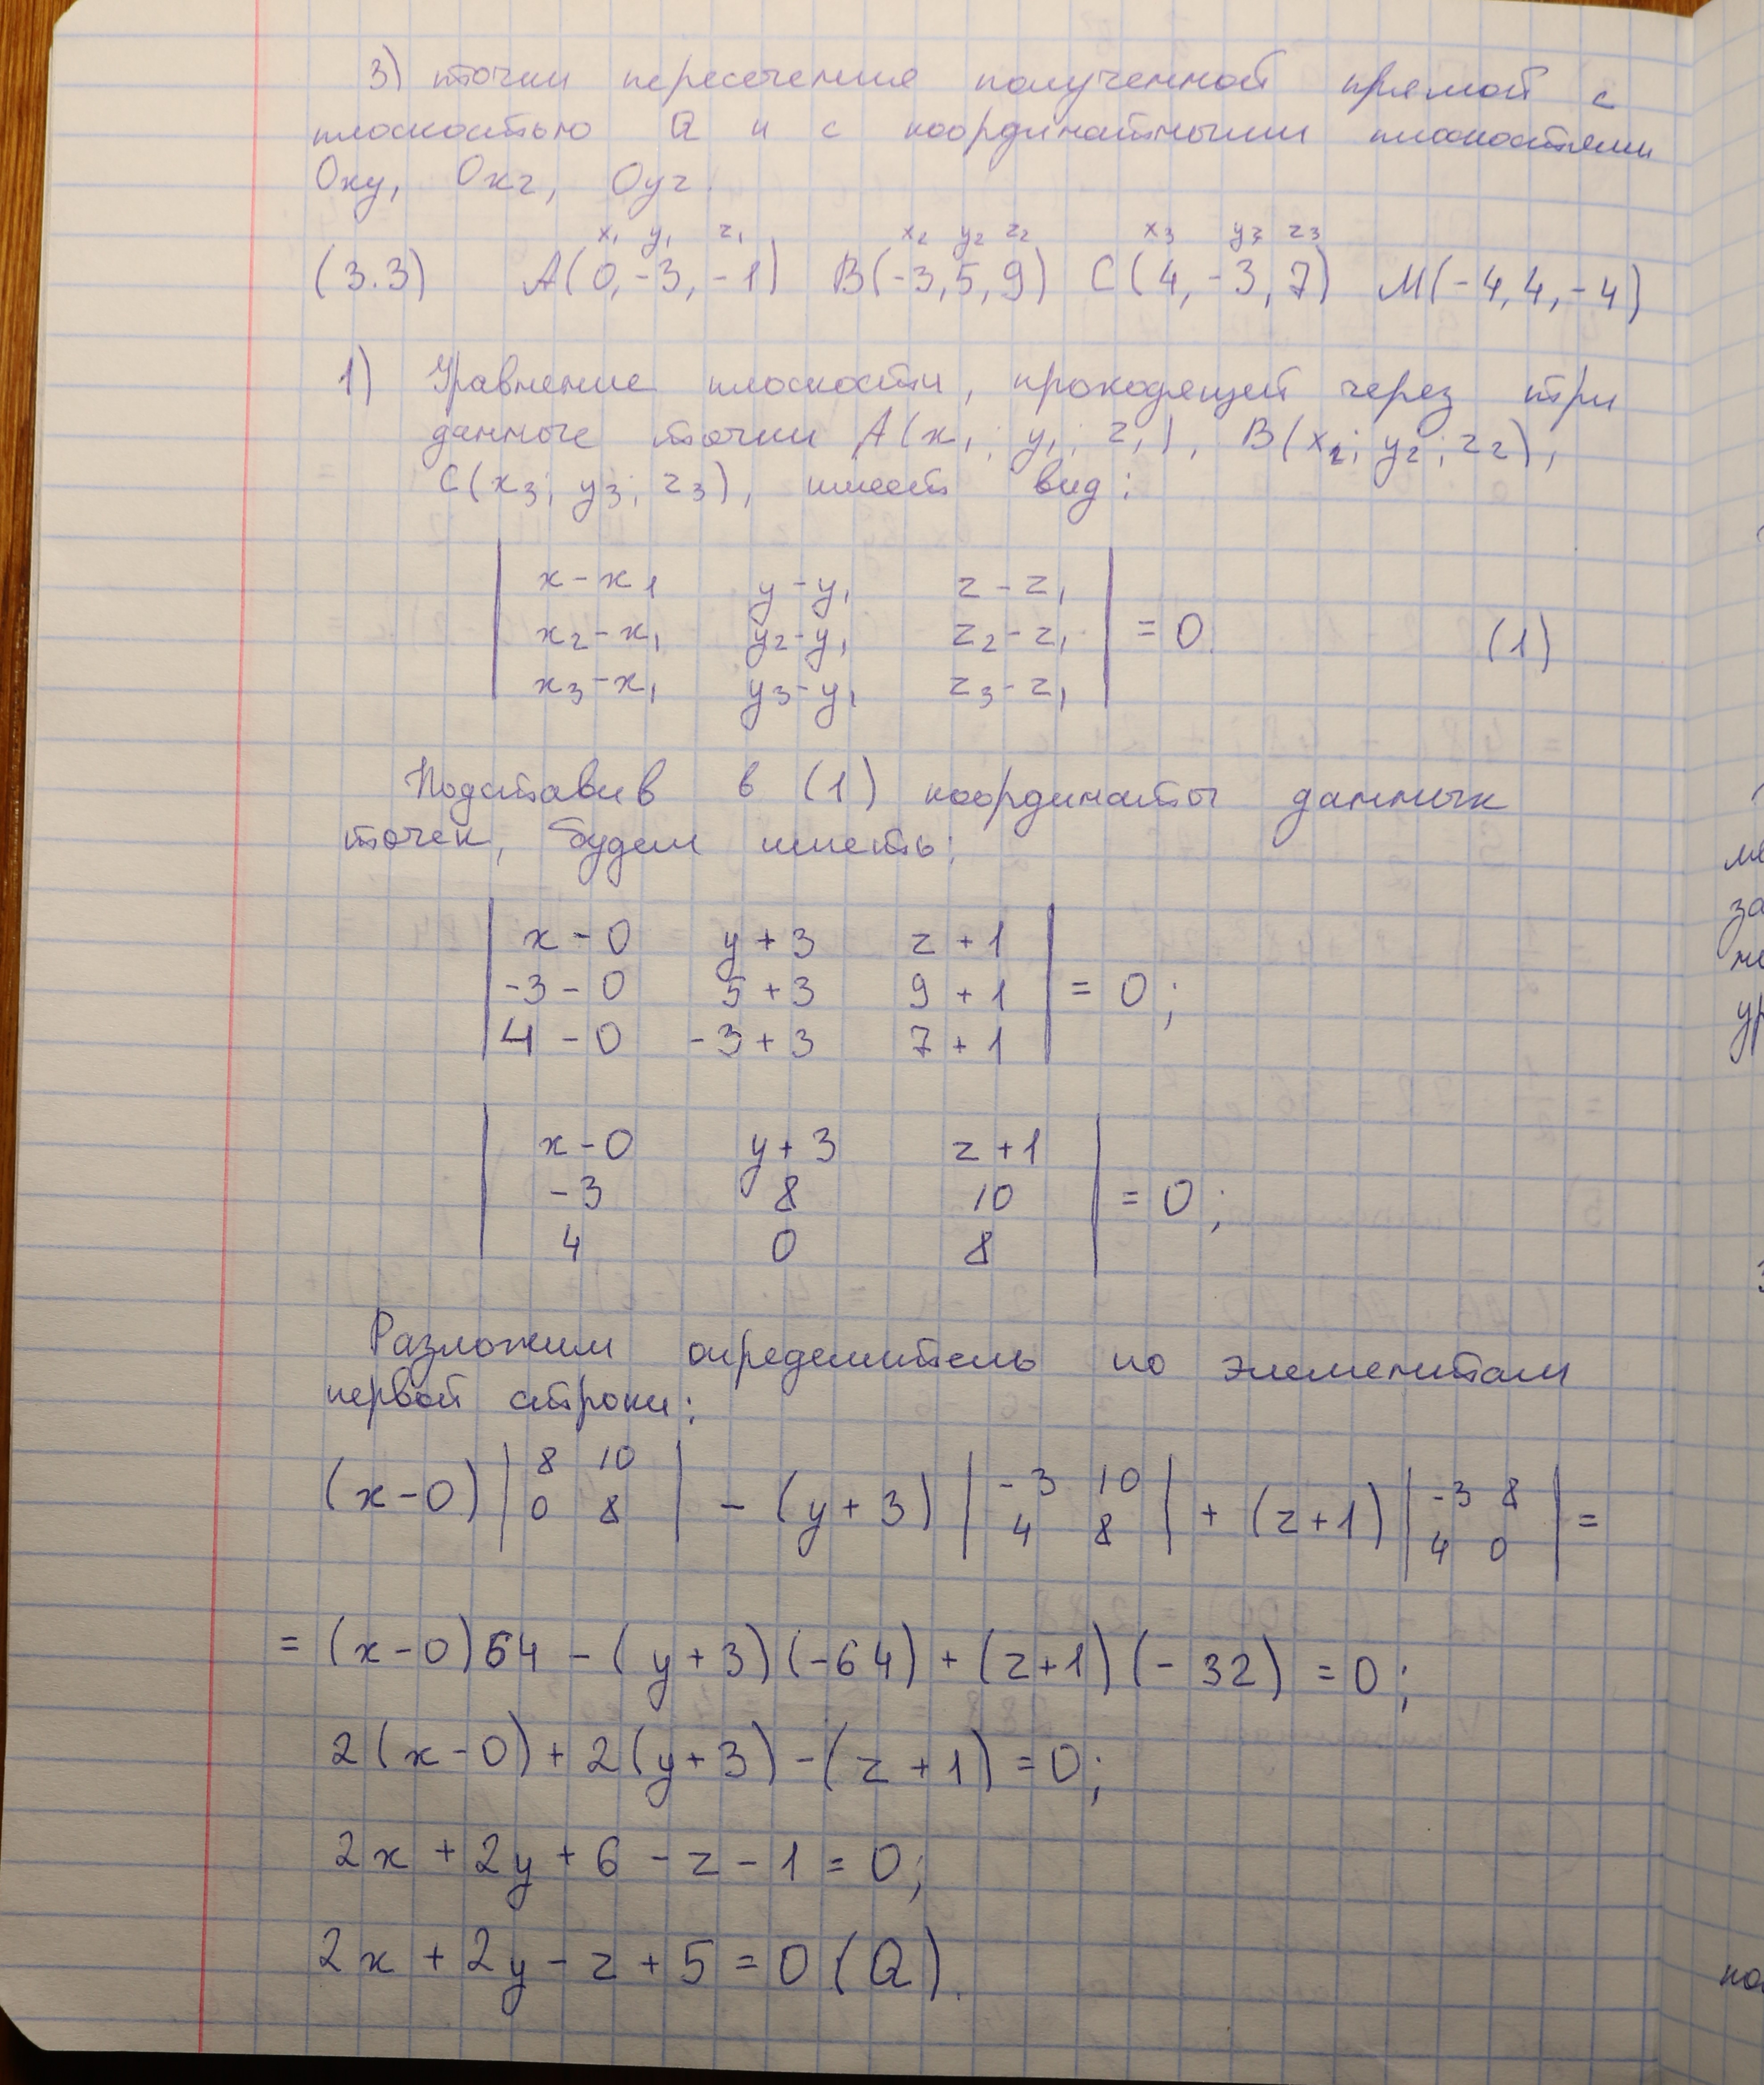 3) точки пересечения полученной прямой с
плоскостью Q и с координатными плоскостями
Oxy, Oxz, Oyz.
x₁ y₁ z₁ x₂ y₂ z₂ x₃ y₃ z₃
(3.3) A(0,-3,-1) B(-3,5,9) C(4,-3,7) M(-4,4,-4)
1) Уравнение плоскости, проходящей через три
данные точки A(x₁; y₁; z₁), B(x₂; y₂; z₂),
C(x₃; y₃; z₃), имеет вид:
| x-x₁ y-y₁ z-z₁ |
| x₂-x₁ y₂-y₁ z₂-z₁ | = 0. (1)
| x₃-x₁ y₃-y₁ z₃-z₁ |
Подставив в (1) координаты данных
точек, будем иметь:
| x-0 y+3 z+1 |
| -3-0 5+3 9+1 | = 0;
| 4-0 -3+3 7+1 |
| x-0 y+3 z+1 |
| -3 8 10 | = 0;
| 4 0 8 |
Разложим определитель по элементам
первой строки:
(x-0) | 8 10 | - (y+3) | -3 10 | + (z+1) | -3 8 | =
| 0 8 | | 4 8 | | 4 0 |
= (x-0)64 - (y+3)(-64) + (z+1)(-32) = 0;
2(x-0)+2(y+3)-(z+1)=0;
2x+2y+6-z-1=0;
2x+2y-z+5=0 (Q).